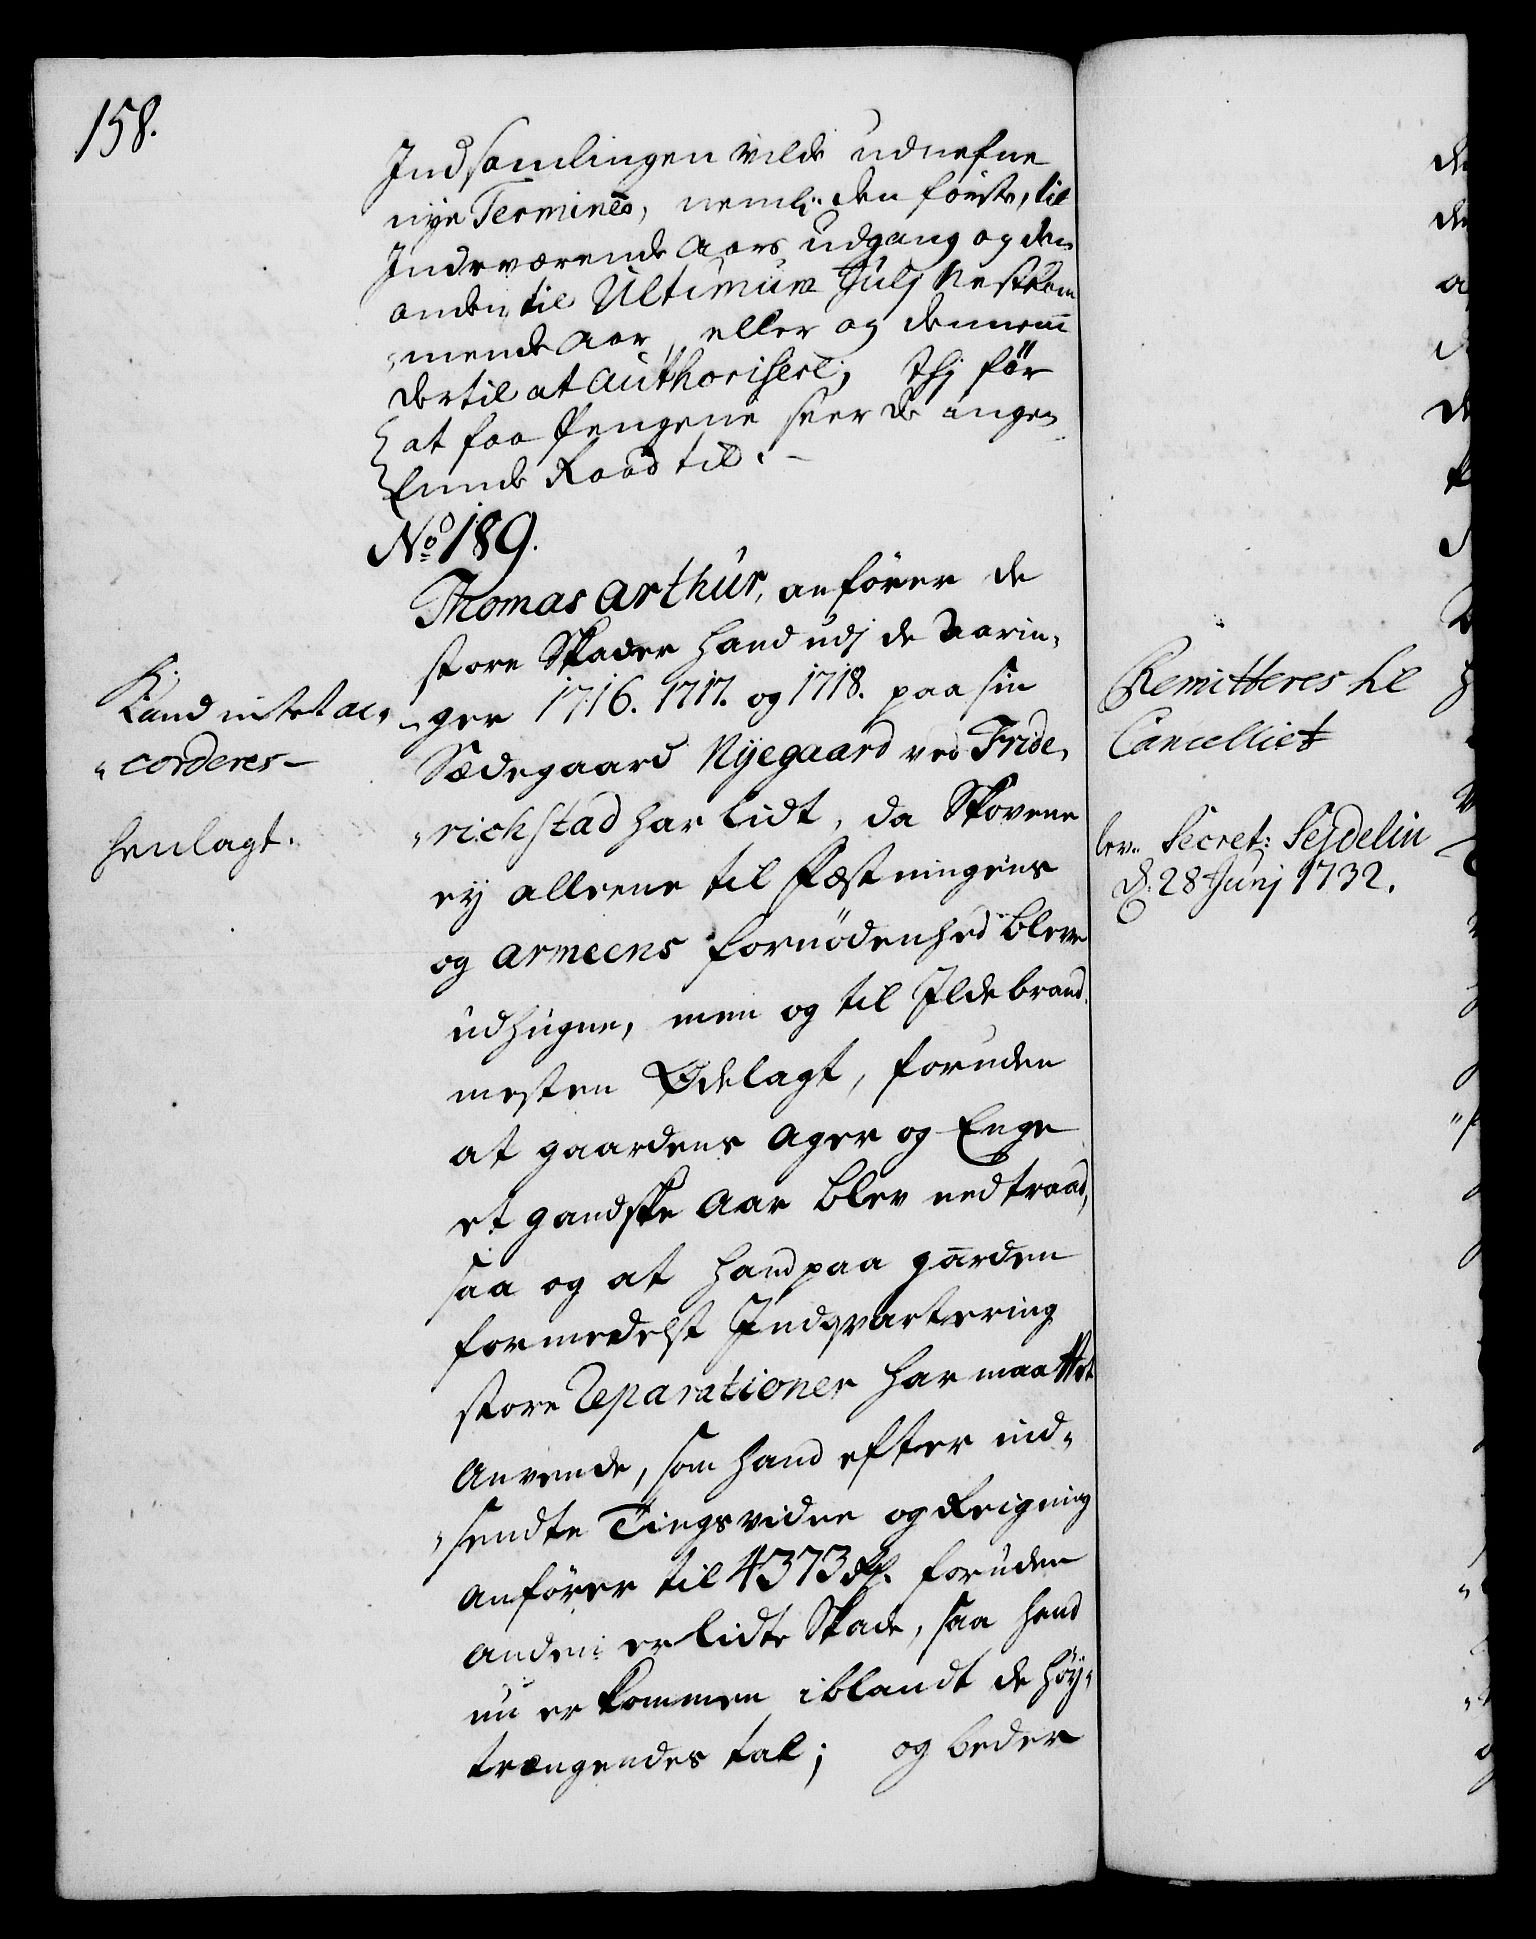 158.
Indsamlingen vilde udnefne
nye Termines, nemlig den förste, til
Indeværende aars udgang og den
anden til Ultimum Julj Nestkom
mende aar, eller og dennem
dertil at authoriserl; thj för
at faa Pengene seer de ingen
Kunde Raad til. -
No 189.
Thomas arthur, anförer de
store Skader hand udj de aarin-
ger 1716. 1717. og 1718. paa sin
Sædegaard Nyegaard ved Fride-
richstad har lidt, da Skovene
ej alleene til Fæstningens
og armeens fornödenhed bleve
udhugne, men og til Ildebrand
mesten Ødelagt, foruden
at gaardens ager og Enge
et gandske aar blev nedtraad,
saa og at hand paa garden
formedelst Indqvartering
store Reparationer har maattet
anvende, som hand efter ind-
sendte Tingsvidne og Reigning
anförer til 4373 Rd. foruden
anden erlidte Skade, saa hand
nu er kommen iblandt de höy-
trængendes tal; og beder
Kand intet ac-
corderes -
henlagt.
Remitteres til
Cancelliet
lev. Secret: Sejdelin
d: 28 Junj 1732.